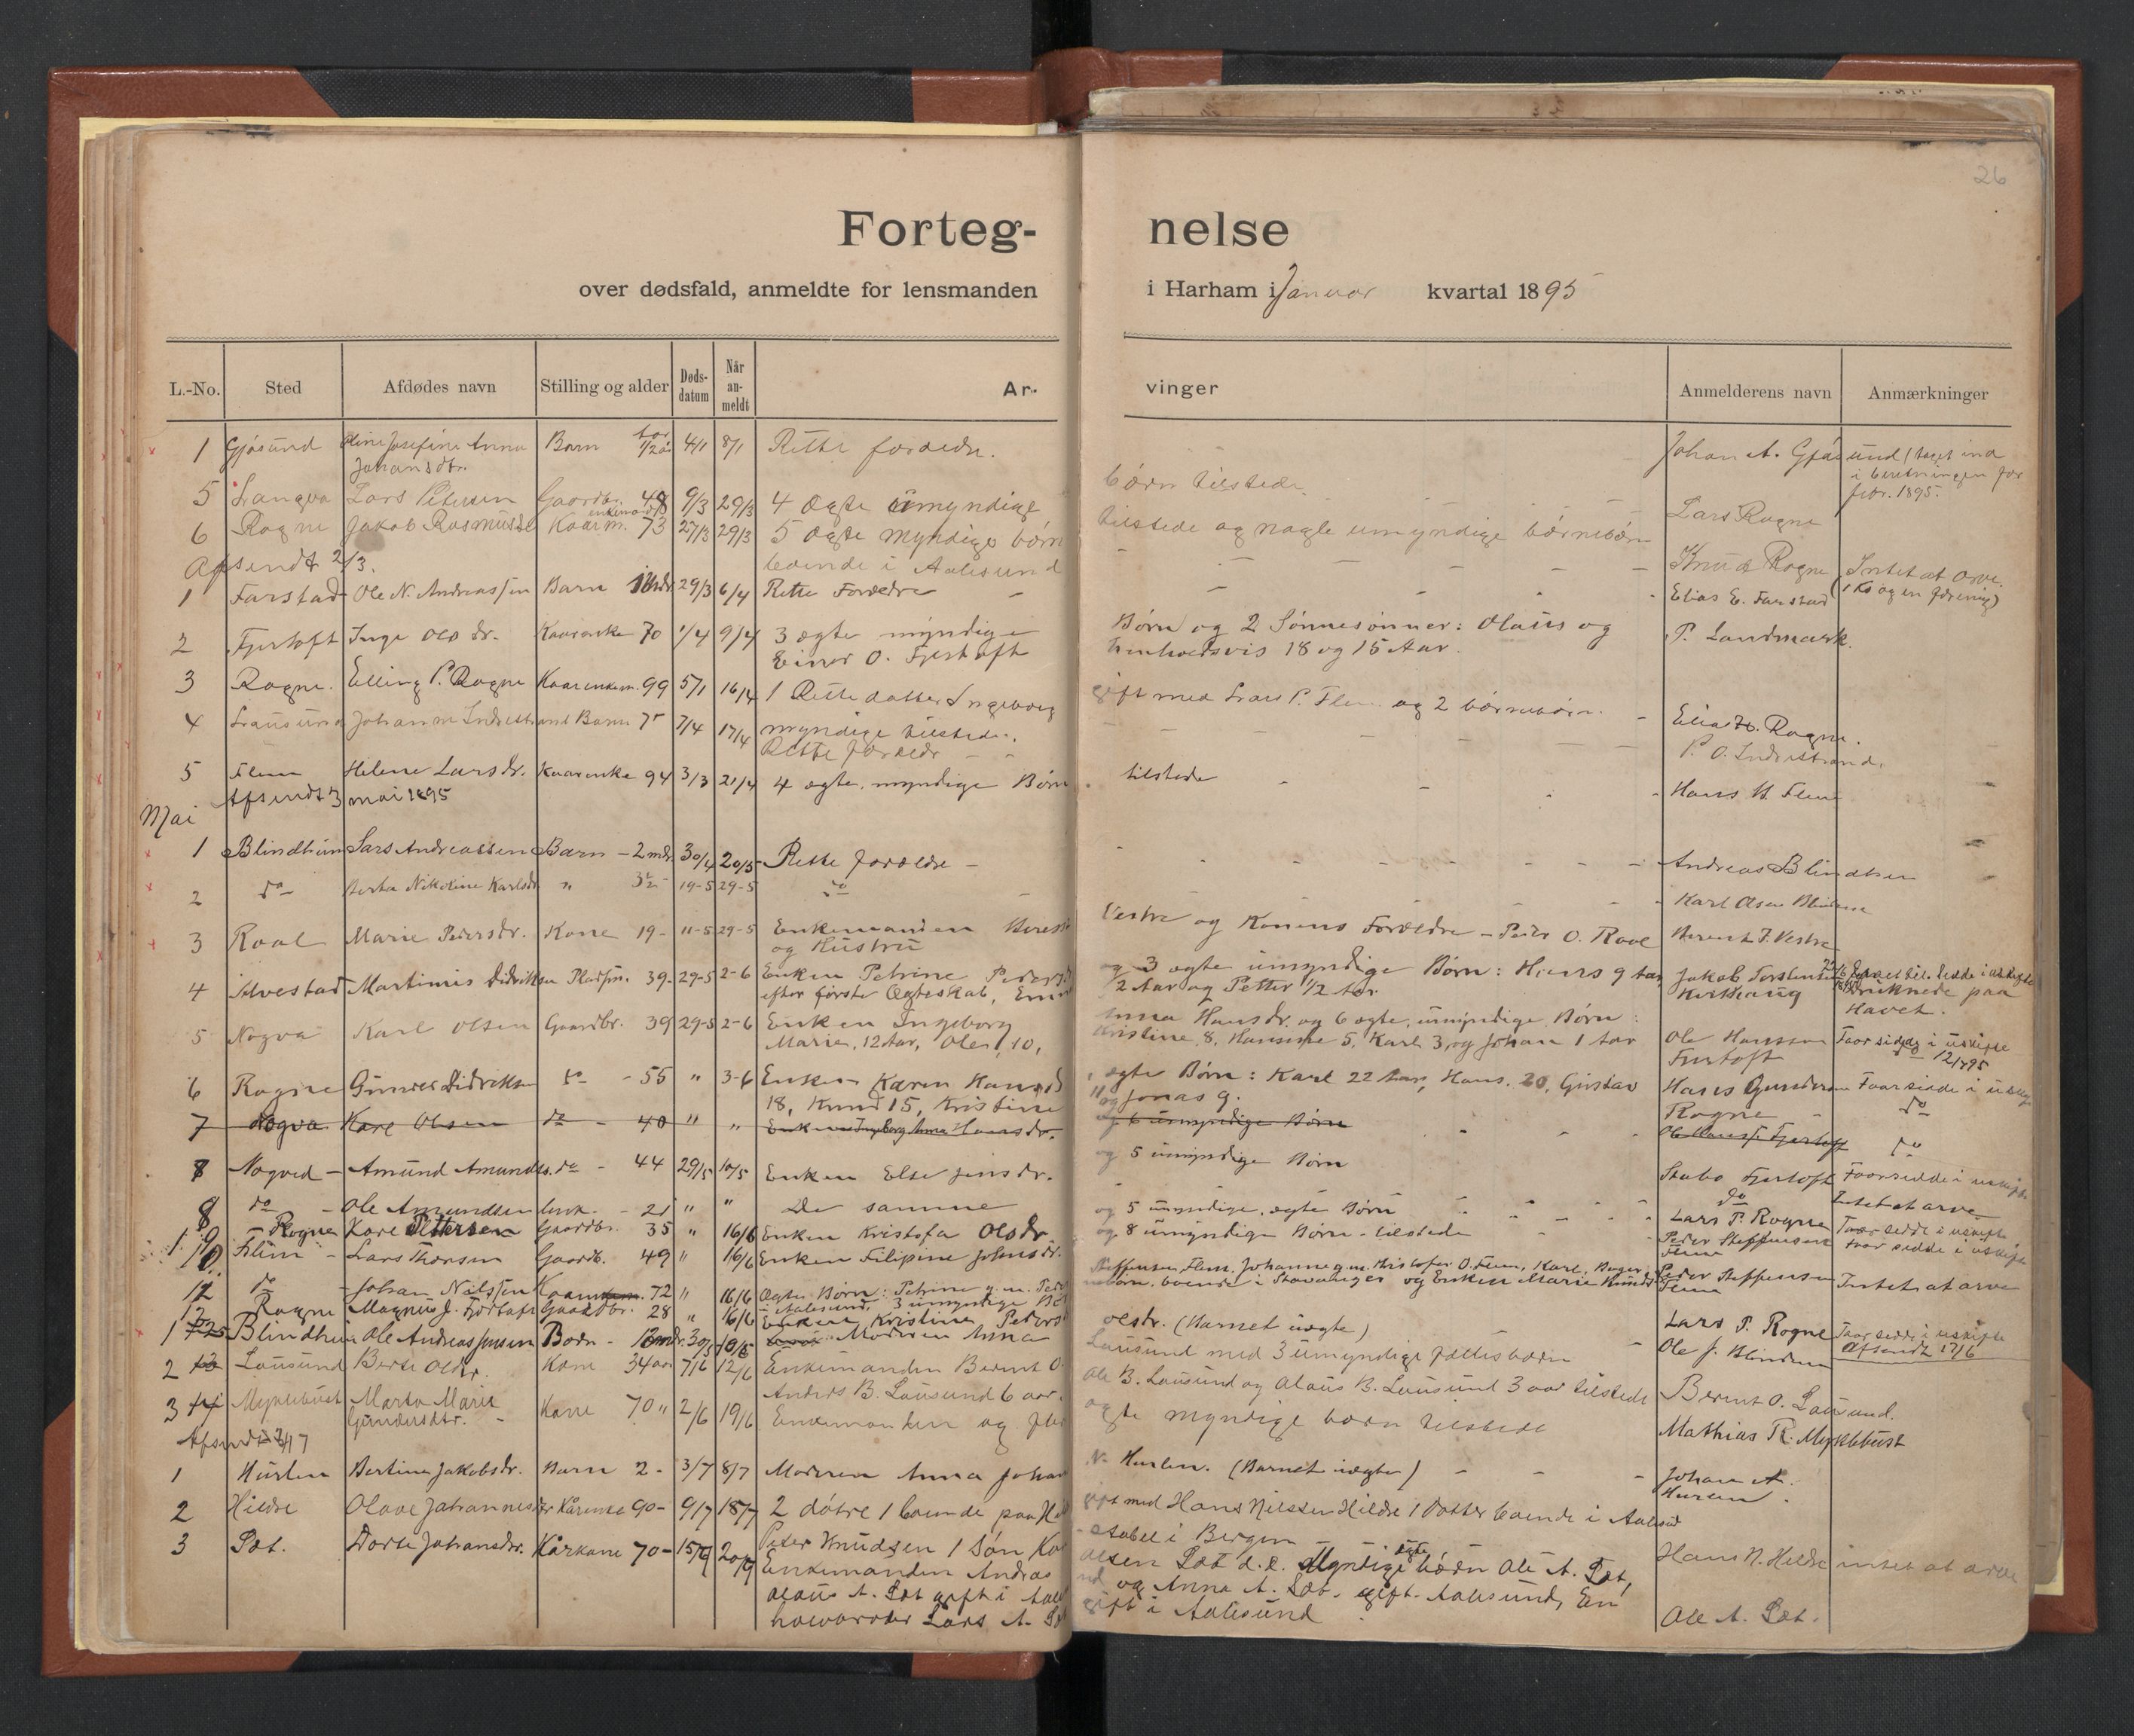 26
Forteg- nelse
over dødsfald, anmeldte for lensmanden i Harham i Januar kvartal 1895
L.-No. Sted Afdødes navn Stilling og alder Døds-datum Når an-meldt Ar- vinger Anmelderens navn Anmærkninger
1 Gjøsund Oline Josefine Anna Barn 1/2 4/1 8/1 Rette forældr. Johan A. Gjøsund (taget ind
Johansdtr. i beretningen for
febr. 1895.
5 Longva Lars Petersen Gaardbr. 48 9/3 29/3 4 Ægte umyndige børn tilstede. Lars Rogne
enkemand
6 Rogne Jakob Rasmussen Kaarm. 73 27/3 29/3 5 Ægte myndige børn tilstede og nogle umyndige børnebørn Knud Rogne Intet at arve.
Afsendt 2/3. boende i Aalesund (1 Ko og en forening)
1 Farstad Ole N. Andreassen Barn 29/3 6/4 Rette Forældre Elias E. Farstad
2 Fjertoft Inge Ols dr. Kaarenke 70 1/4 9/4 3 ægte myndige Børn og 2 Sønnesønner: Olaus og P. Landmark.
Einer O. Fjertoft henholdsvis 18 og 15 Aar.
3 Rogne. Elling P. Rogne Kaarenkem. 99 5/1 16/4 1 Rette datter Ingeborg gift med Lars P. Flem og 2 børnebørn. Elias H. Rogne.
myndige tilstede.
4 Lausund Johanne Indrestrand Barn 7/4 17/4 Rette forældr P. O. Indrestrand.
5 Flem Helene Larsdr. Kaarenke 94 3/3 21/4 4 ægte, myndige Børn tilstede Hans H. Flem
Afsendt 3 mai 1895
Mai
1 Blindheim Lars Andreassen Barn - 2 mdr. 30/4 20/5 Rette forældre - Andreas Blindheim
2 do Berta Nikoline Karlsdr " 19-5 29-5 do Karl Olsen Blindheim
3 Roal Marie Pedersdr. Kone 19- 11-5 29-5 Enkemanden Berent Vestre og Konens Forældre - Peder O. Roal Berent J. Vestre
og Hustru
4 Alvestad Martinus Didriksen Pladsm. 39- 29-5 2-6 Enken Petrine Pedersdr og 3 ægte umyndige Børn: Hans 9 Aar, Jakob Torstensen
efter første Ægteskab, 2 Aar og Petter 1/2 Aar Druknede paa
Havet.
5 Nogva Karl Olsen Gaardbr. 39 29-5 2-6 Enken Ingeborg Anna Hansdr. og 6 ægte, umyndige Børn: Ole Hansson Faar sidde i uskifte
Marie, 12 Aar, Ole, 10, Kristine, 8, Hansine 5, Karl 3, og Johan 1 Aar Fjertoft
6 Rogne Gunder Didriksen do - 55 " 3-6 Enken Karen Hansdr, ægte Børn: Karl 22 Aar, Hans, 20, Gustav Hans Gundersen Faar sidde i uskifte
18, Knud 15, Kristine 11 og Jonas 9. Rogne
7 Nogva Karl Olsen do - 40 " " Enken Ingeborg Anna Hansdr. og 6 umyndige Børn Ole Hanss. Fjertoft do
8 Nogved - Amund Amundss. do - 44 29/5 10/5 Enken Else Jensdr. og 5 umyndige Børn Fjertoft Faar sidde i uskifte
8 do - Ole Amundsen Enk. - 21 " " De samme do Intet at arve
Rogne Kare Pettersen Gaardbr. 35 " 16/6 Enken Kristofa Olsdr. og 5 umyndige, ægte Børn Lars P. Rogne Faar sidde i uskifte
10 Flem - Lars Thorsen Gaardb. 49 " 16/6 Enken Filipine Johnsdr. og 8 umyndige Børn - tilstede Peder Steffensen Faar sidde i uskifte
Flem
12 do - Johan Nilssen 72 " 16/6 Ægte Børn: Petrine g. m. Peder Steffensen Flem, Johanne g. m. Kristofer O. Flem, Karl, Peder Steffensen Intet at arve
i Aalesund, 3 umyndige børnebørn, boende i Stavanger og Enken Marie Knudsdr Flem
Rogne Magnus J. Fjørtoft Gaardbr. 28 " 16/6 Enken Kristine Pedersdr Lars P. Rogne Faar sidde i uskifte
1 Blindheim Ole Andreas Jensen Barn - 30/5 10/6 Moderen Anna Olsdr. (Barnet uægte) Ole J. Blindheim Afsendt 17/6
2 13 Lausund Berte Olsdr. Kone 34 aar 7/6 12/6 Enkemanden Bernt O. Lausund med 3 umyndige fællesbørn
Anders B. Lausund 6 aar. Ole B. Lausund og Olaus B. Lausund 3 aar tilstede Bernt O. Lausund.
3 14 Myklebust Marta Marie Kone 70 " 2/6 19/6 Enkemanden og ægte myndige børn tilstede Mathias R. Myklebust
Gundersdtr.
Afsendt 3/7
1 Hurlen Bertine Jakobsdr. Barn 2 - 3/7 8/7 Moderen Anna Johan N. Hurlen. (Barnet uægte) Johan A.
Hurlen.
2 Hildre Olave Johannesdr Kårenke 90- 9/7 18/7 2 døtre 1 boende paa Hildre gift med Hans Nilssen Hildre 1 Datter boende i Aalesund
Peter Knudsen 1 Søn i Bergen Hans N. Hildre intet at arve
3 Sæt. Dorte Johansdr. Kårkone 70- Enkemanden Andras Olsen Sæt d. e. Myndige ægte børn Ole A. Sæt,
Olaus A. Sæt gift i Aalesund og Anna A. Sæt. gift. Aalesund, En
halvbroder Lars A. Sæt gift i Aalesund Ole A. Sæt.